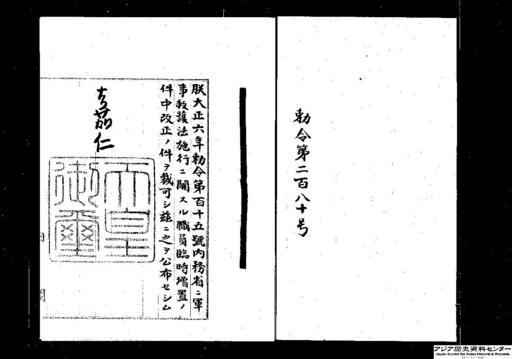 勅令第二百八十号
朕大正六年勅令第百十五號内務省ニ軍
事救護法施行ニ關スル職員臨時増置ノ
件中改正ノ件ヲ裁可シ茲ニ之ヲ公布セシム
嘉仁
天皇
御璽
アジア歴史資料センター
Japan Center for Asian Historical Records